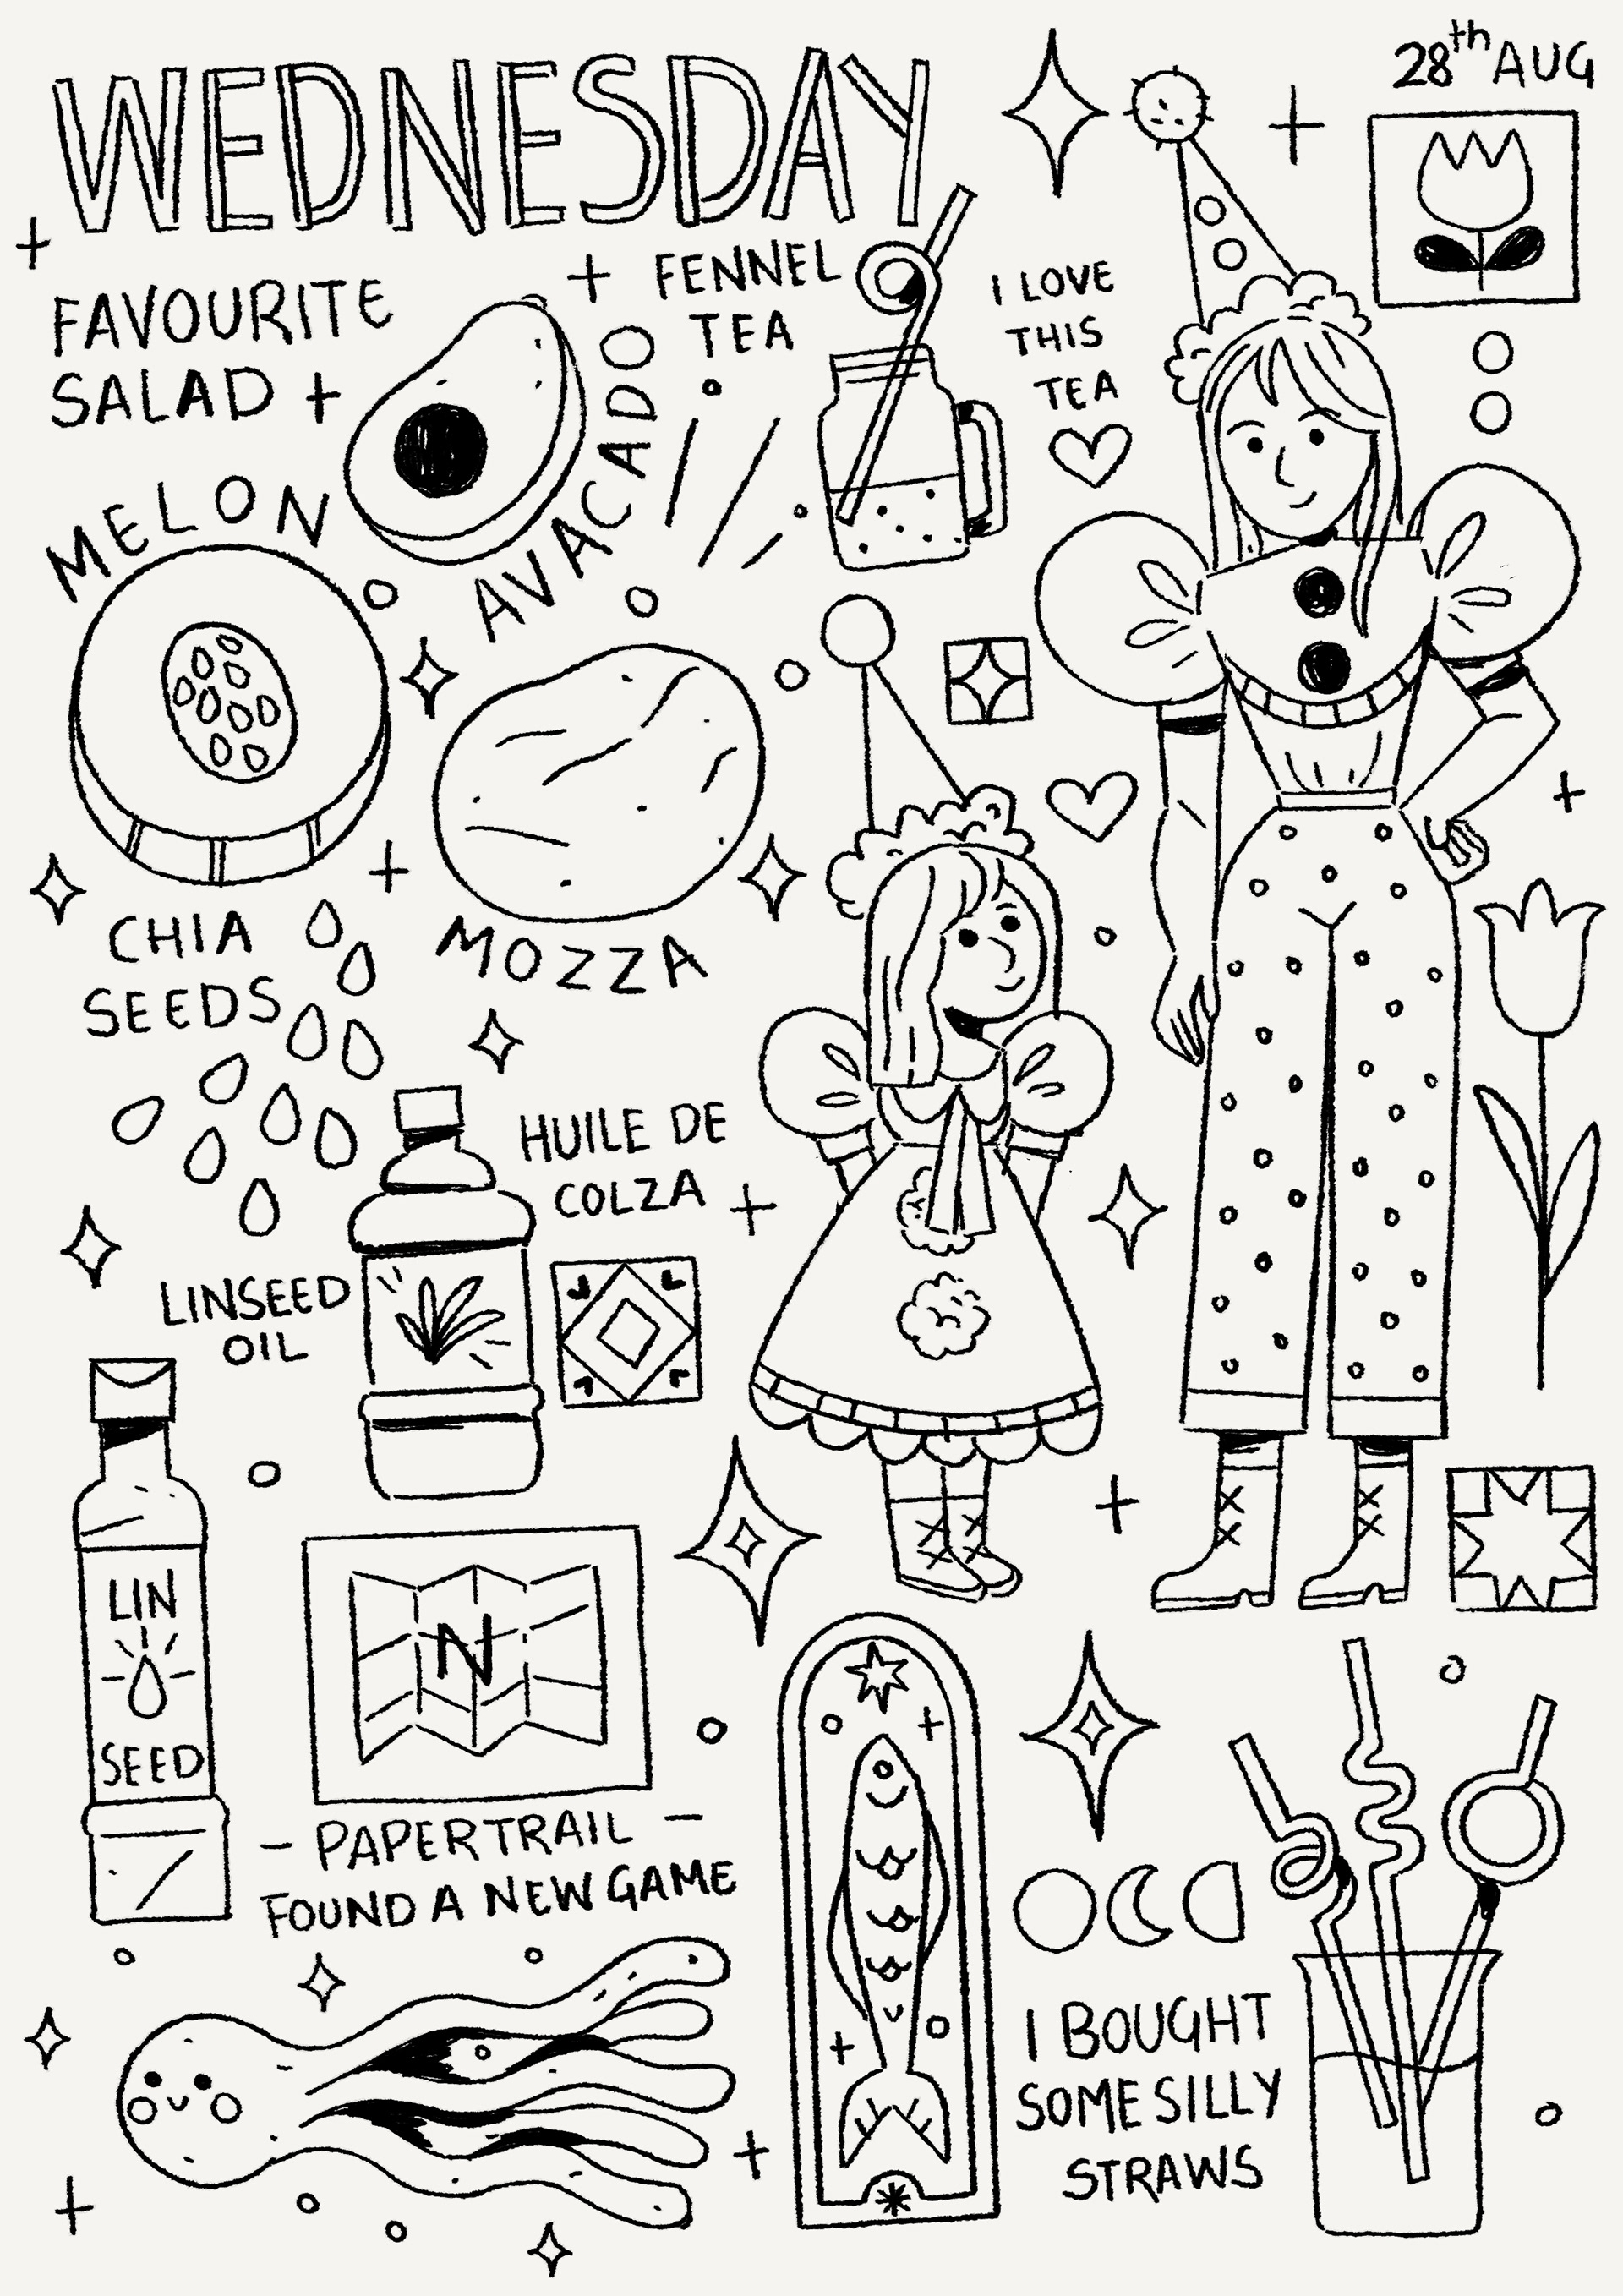 WEDNESDAY
28th AUG
FAVOURITE
SALAD +
FENNEL
TEA
I LOVE
THIS
TEA
AVACADO
MELON
MOZZA
CHIA
SEEDS
HUILE DE
COLZA
LINSEED
OIL
LIN
SEED
N
- PAPERTRAIL -
FOUND A NEW GAME
I BOUGHT
SOME SILLY
STRAWS